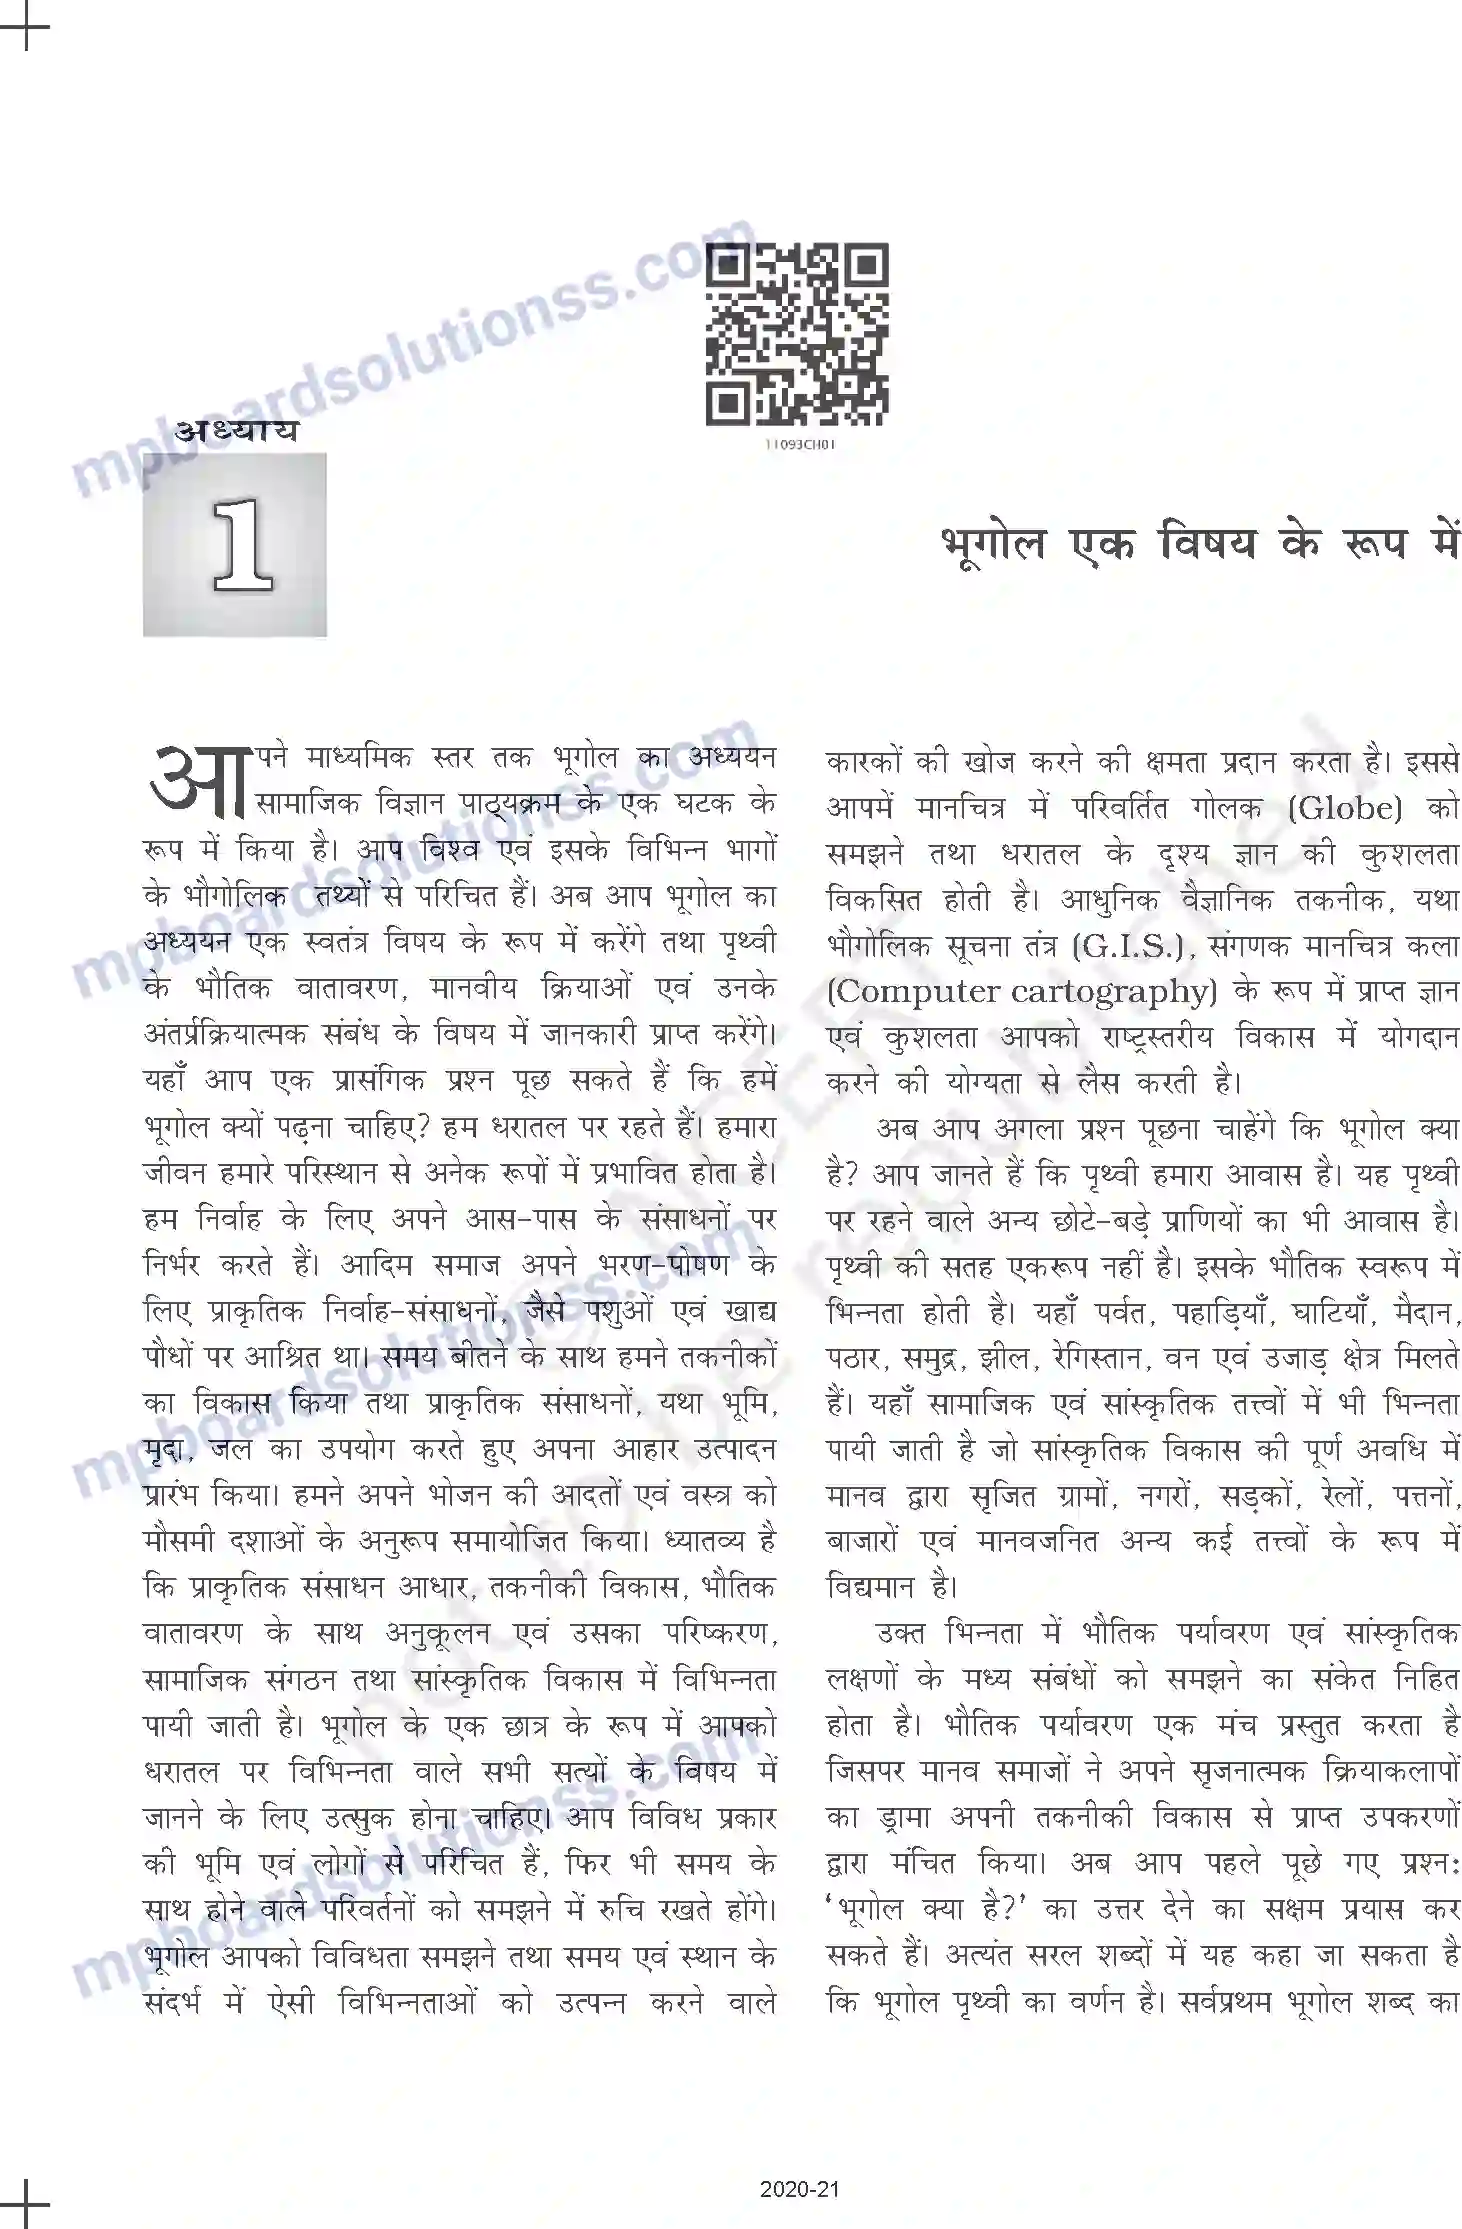 11093CH01
अध्याय
1
भूगोल एक विषय के रूप में
आपने माध्यमिक स्तर तक भूगोल का अध्ययन
सामाजिक विज्ञान पाठ्यक्रम के एक घटक के
रूप में किया है। आप विश्व एवं इसके विभिन्न भागों
के भौगोलिक तथ्यों से परिचित हैं। अब आप भूगोल का
अध्ययन एक स्वतंत्र विषय के रूप में करेंगे तथा पृथ्वी
के भौतिक वातावरण, मानवीय क्रियाओं एवं उनके
अंतर्प्रक्रियात्मक संबंध के विषय में जानकारी प्राप्त करेंगे।
यहाँ आप एक प्रासंगिक प्रश्न पूछ सकते हैं कि हमें
भूगोल क्यों पढ़ना चाहिए? हम धरातल पर रहते हैं। हमारा
जीवन हमारे परिस्थान से अनेक रूपों में प्रभावित होता है।
हम निर्वाह के लिए अपने आस-पास के संसाधनों पर
निर्भर करते हैं। आदिम समाज अपने भरण-पोषण के
लिए प्राकृतिक निर्वाह-संसाधनों, जैसे पशुओं एवं खाद्य
पौधों पर आश्रित था। समय बीतने के साथ हमने तकनीकों
का विकास किया तथा प्राकृतिक संसाधनों, यथा भूमि,
मृदा, जल का उपयोग करते हुए अपना आहार उत्पादन
प्रारंभ किया। हमने अपने भोजन की आदतों एवं वस्त्र को
मौसमी दशाओं के अनुरूप समायोजित किया। ध्यातव्य है
कि प्राकृतिक संसाधन आधार, तकनीकी विकास, भौतिक
वातावरण के साथ अनुकूलन एवं उसका परिष्करण,
सामाजिक संगठन तथा सांस्कृतिक विकास में विभिन्नता
पायी जाती है। भूगोल के एक छात्र के रूप में आपको
धरातल पर विभिन्नता वाले सभी सत्यों के विषय में
जानने के लिए उत्सुक होना चाहिए। आप विविध प्रकार
की भूमि एवं लोगों से परिचित हैं, फिर भी समय के
साथ होने वाले परिवर्तनों को समझने में रुचि रखते होंगे।
भूगोल आपको विविधता समझने तथा समय एवं स्थान के
संदर्भ में ऐसी विभिन्नताओं को उत्पन्न करने वाले
कारकों की खोज करने की क्षमता प्रदान करता है। इससे
आपमें मानचित्र में परिवर्तित गोलक (Globe) को
समझने तथा धरातल के दृश्य ज्ञान की कुशलता
विकसित होती है। आधुनिक वैज्ञानिक तकनीक, यथा
भौगोलिक सूचना तंत्र (G.I.S.), संगणक मानचित्र कला
(Computer cartography) के रूप में प्राप्त ज्ञान
एवं कुशलता आपको राष्ट्रस्तरीय विकास में योगदान
करने की योग्यता से लैस करती है।
अब आप अगला प्रश्न पूछना चाहेंगे कि भूगोल क्या
है? आप जानते हैं कि पृथ्वी हमारा आवास है। यह पृथ्वी
पर रहने वाले अन्य छोटे-बड़े प्राणियों का भी आवास है।
पृथ्वी की सतह एकरूप नहीं है। इसके भौतिक स्वरूप में
भिन्नता होती है। यहाँ पर्वत, पहाड़ियाँ, घाटियाँ, मैदान,
पठार, समुद्र, झील, रेगिस्तान, वन एवं उजाड़ क्षेत्र मिलते
हैं। यहाँ सामाजिक एवं सांस्कृतिक तत्त्वों में भी भिन्नता
पायी जाती है जो सांस्कृतिक विकास की पूर्ण अवधि में
मानव द्वारा सृजित ग्रामों, नगरों, सड़कों, रेलों, पत्तनों,
बाजारों एवं मानवजनित अन्य कई तत्त्वों के रूप में
विद्यमान है।
उक्त भिन्नता में भौतिक पर्यावरण एवं सांस्कृतिक
लक्षणों के मध्य संबंधों को समझने का संकेत निहित
होता है। भौतिक पर्यावरण एक मंच प्रस्तुत करता है
जिसपर मानव समाजों ने अपने सृजनात्मक क्रियाकलापों
का ड्रामा अपनी तकनीकी विकास से प्राप्त उपकरणों
द्वारा मंचित किया। अब आप पहले पूछे गए प्रश्न:
‘भूगोल क्या है?’ का उत्तर देने का सक्षम प्रयास कर
सकते हैं। अत्यंत सरल शब्दों में यह कहा जा सकता है
कि भूगोल पृथ्वी का वर्णन है। सर्वप्रथम भूगोल शब्द का
2020-21
mpboardsolutionss.com
mpboardsolutionss.com
mpboardsolutionss.com
mpboardsolutionss.com
© NCERT
not to be republished